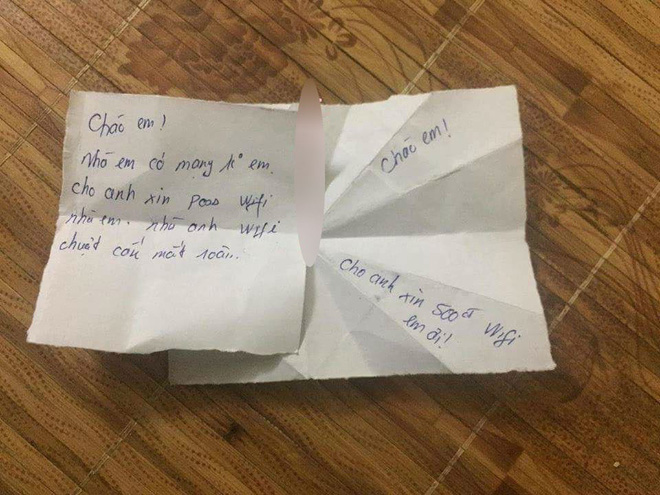 Chào em!
Nhà em có mạng k° em.
cho anh xin pass wifi
nhà em. nhà anh wifi
chuột cắn mất rồi...
Chào em!
Cho anh xin 500đ wifi
em ơi!